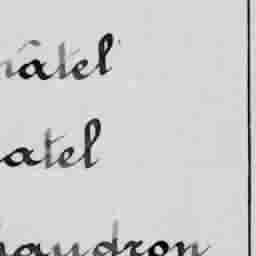 hâtel
atel
haudron